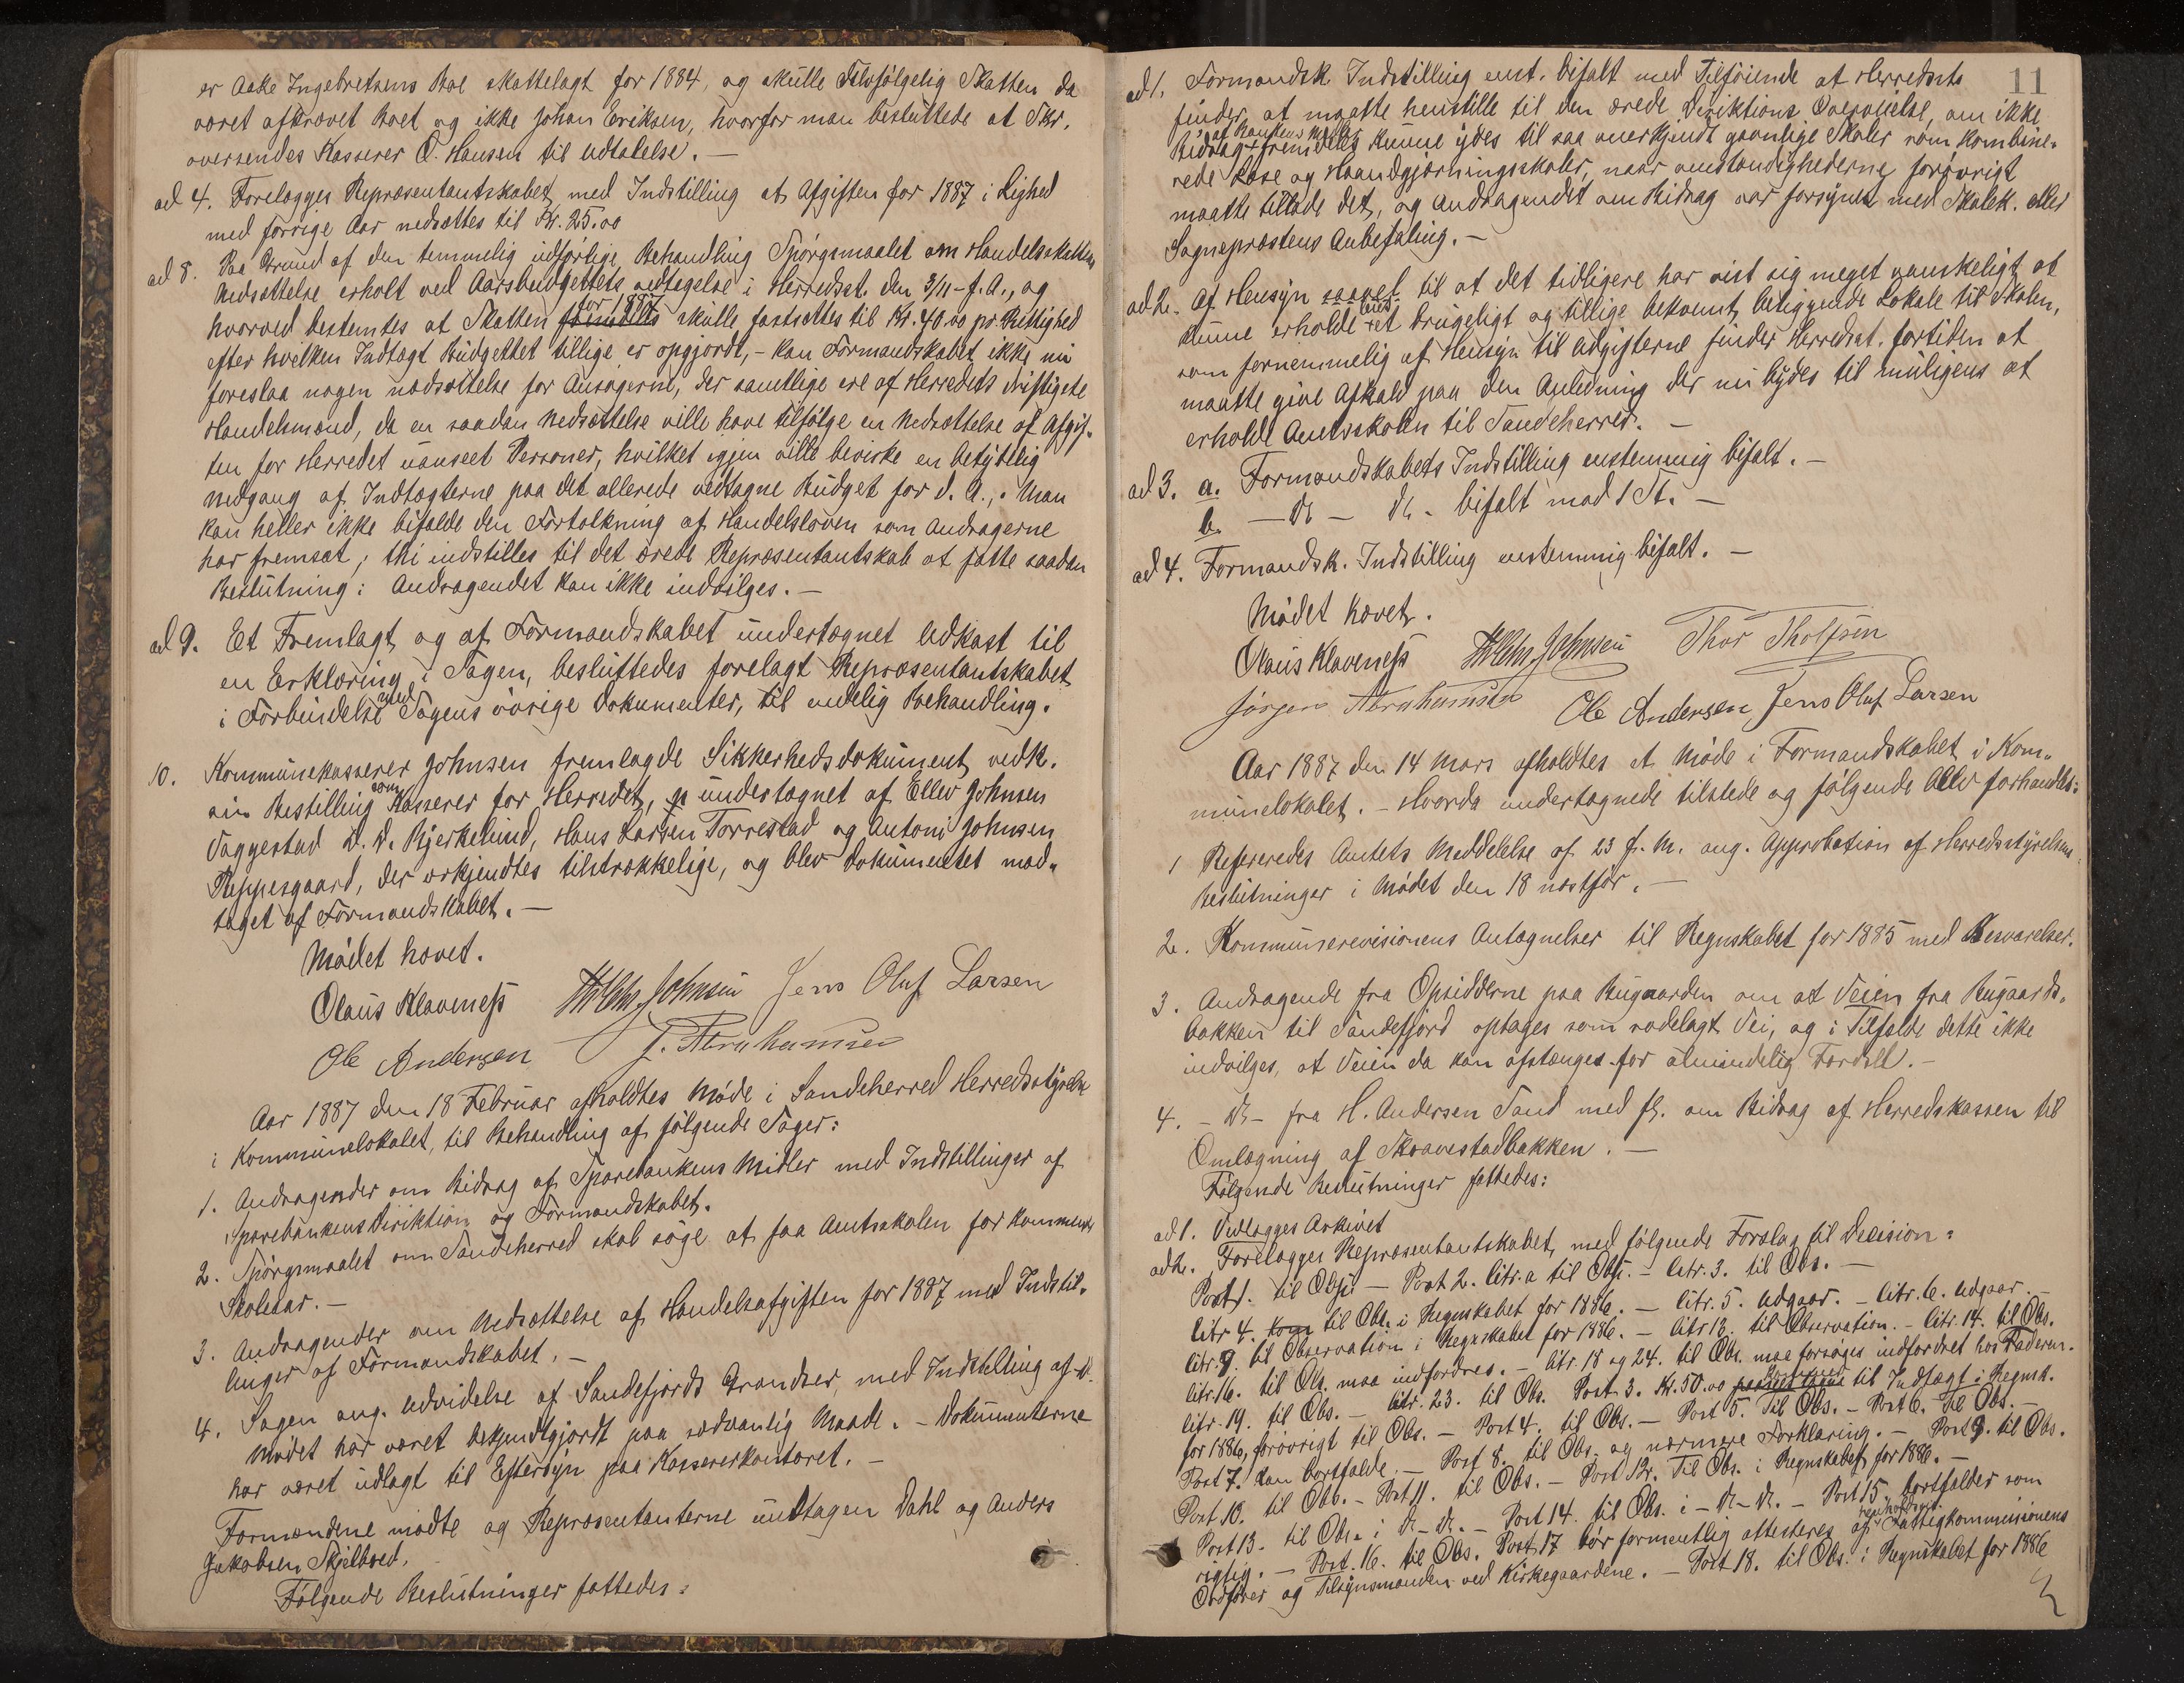 er Aake Ingebretsens Boe skattelagt for 1884, og skulle Selvfølgelig Skatten da
været afkrævet Boet og ikke Johan Eriksen, hvorfor man besluttede at Skr.
oversendes Kasserer O. Hansen til udtalelse. —
ad 4. Forelægges Repræsentantskabet med Indstilling at Afgiften for 1887 i Lighed
med forrige Aar nedsættes til Kr. 25.00
ad 8. Paa Grund af den temmelig udførlige Behandling Spørgsmaalet om Handelsskattens
Nedsættelse erholt ved Aarsbudgettets vedtagelse i Herredsst. den 3/11 f. A., og
hvorved bestemtes at Skatten for 1887 skulle fastsættes til Kr. 40.00 pr. Rettighed
efter hvilken Indtægt Budgettet tillige er opgjordt, - kan Formandskabet ikke nu
foreslaa nogen nedsættelse for Ansøgerne, der samtlige ere af Herredets driftigste
Handelsmænd, da en saadan Nedsættelse ville have tilfølge en Nedsættelse af Afgif-
ten for Herredet uanseet Personer, hvilket igjen ville bevirke en betydelig
nedgang af Indtægterne paa det allerede vedtagne Budget for d. A.,. Man
kan heller ikke bifalde den Fortolkning af Handelsloven som Andragerne
har fremsat; thi indstilles til det ærede Repræsentantskab at fatte saadan
Beslutning: Andragendet kan ikke indvilges. —
ad 9. Et Fremlagt og af Formandskabet undertegnet Udkast til
en Erklæring i Sagen, besluttedes forelagt Repræsentantskabet
i Forbindelse med Sagens øvrige Dokumenter, til endelig Behandling.
10. Kommunekasserer Johnsen fremlagde Sikkerhedsdokument vedk.
sin Bestilling som Kasserer for Herredet, undertegnet af Ellev Johnsen
Vaggestad D. D. Bjerkelund, Hans Larsen Torrestad og Antoni Johnsen
Reppesgaard, der erkjendtes tilstrækkelige, og blev Dokumentet mod-
taget af Formandskabet. —
Mødet hævet.
Olaus Klaveness Wilhs Johnsen Jens Oluf Larsen
Ole Andersen J. Abrahamsen
Aar 1887 den 18 Februar afholdtes Møde i Sandeherred Herredsstyrelse
i Kommunelokalet, til Behandling af følgende Sager:
1. Andragender om Bidrag af Sparebankens Midler med Indstillinger af
Sparebankens Direktion og Formandskabet.
2. Spørgsmaalet om Sandeherred skal søge at faa Amtsskolen for kommende
Skoleaar. —
3. Andragender om Nedsættelse af Handelsafgiften for 1887 med Indstil-
linger af Formandskabet. —
4. Sagen ang. Udvidelse af Sandefjords Grændser, med Indstilling af D.
Mødet har været bekjendtgjordt paa sædvanlig Maade. - Dokumenterne
har været udlagt til Eftersyn paa Kassererkontoret. —
Formændene mødte og Repræsentanterne undtagen Dahl og Anders
Jakobsen Skjelbred.
Følgende Beslutninger fattedes:
11
ad 1. Formandsk. Indstilling enst. bifalt med Tilføiende at Herredsst.
finder at maatte henstille til den ærede Direktions Overveielse, om ikke
Bidrag af Bankens Midler fremdeles kunne ydes til saa anerkjendt gavnlige Skoler som kombine-
rede Læse og Haandgjerningsskoler, naar omstændighederne forøvrigt
maatte tillade det, og Andragendet om Bidrag var forsynet med Skolek. eller
Sognepræstens Anbefaling. —
ad 2. Af Hensyn saavel til at det tidligere har vist sig meget vanskeligt at
kunne erholde leiet et brugeligt og tillige bekvemt beliggende Lokale til Skolen,
som fornemmelig af Hensyn til Udgifterne finder Herredsst. fortiden at
maatte give Afkald paa den Anledning der nu bydes til muligens at
erholde Amtsskolen til Sandeherred. —
ad 3. a. Formandskabets Indstilling enstemmig bifalt. —
b. — Do — Do - bifalt mod 1 St. —
ad 4. Formandsk. Indstilling enstemmig bifalt. —
Mødet hævet.
Olaus Klaveness Wilhs Johnsen Thor Tholfsen
Jørgen Abrahamsen Ole Andersen Jens Oluf Larsen
Aar 1887 den 14 Mars afholdtes et Møde i Formandskabet i Kom-
munelokalet. - Hvorda undertegnede tilstede og følgende blev forhandlet:
1 Refereredes Amtets Meddelelse af 23 f. M. ang. Approbation af Herredsstyrelsens
Beslutninger i Mødet den 18 næstfør. —
2. Kommunerevisionens Antegnelser til Regnskabet for 1885 med Besvarelser.
3. Andragende fra Opsidderne paa Bugaarden om at Veien fra Bugaards-
bakken til Sandefjord optages som rodelagt Vei, og i Tilfælde dette ikke
indvilges, at Veien da kan afstænges for almindelig Færdsel. —
4. - Do - fra H. Andersen Sand med fl. om Bidrag af Herredskassen til
Omlægning af Skravestadbakken. —
Følgende Beslutninger fattedes:
ad 1. Vedlægges Arkivet
ad 2. Forelægges Repræsentantskabet, med følgende Forslag til Decision:
Post 1. til Obs. - Post 2. litr. a til Obs. - litr. 3. til Obs. —
litr 4. til Obs. i Regnskabet for 1886. — litr. 5. udgaar. - litr. 6. udgaar. -
litr. 9. til Observation i Regnskabet for 1886. - litr 13. til Observation. - litr. 14. til Obs.
litr. 16. til Obs. maa indfordres. - litr. 18 og 24. til Obs. maa forsøges indfordret hos Faderen.
litr. 19. til Obs. — litr. 23. til Obs. Post 3. Kr. 50.00 til Indtægt i Regnsk.
for 1886, forøvrigt til Obs. — Post 4. til Obs. — Post 5. Til Obs. - Post 6. til Obs. —
Post 7. kan bortfalde. — Post 8. til Obs. og nærmere Forklaring. - Post 9. til Obs.
Post 10. til Obs. - Post 11. til Obs. - Post 12. Til Obs. i Regnskabet for 1886. —
Post 13. til Obs. i Do - Do. - Post 14. til Obs. i - Do - Do. - Post 15. bortfalder som
rigtig. - Post. 16. til Obs. Post 17 bør formentlig attesteres af Fattigkommissionens
Ordfører og Tilsynsmanden ved Kirkegaardene. - Post 18. til Obs. i Regnskabet for 1886